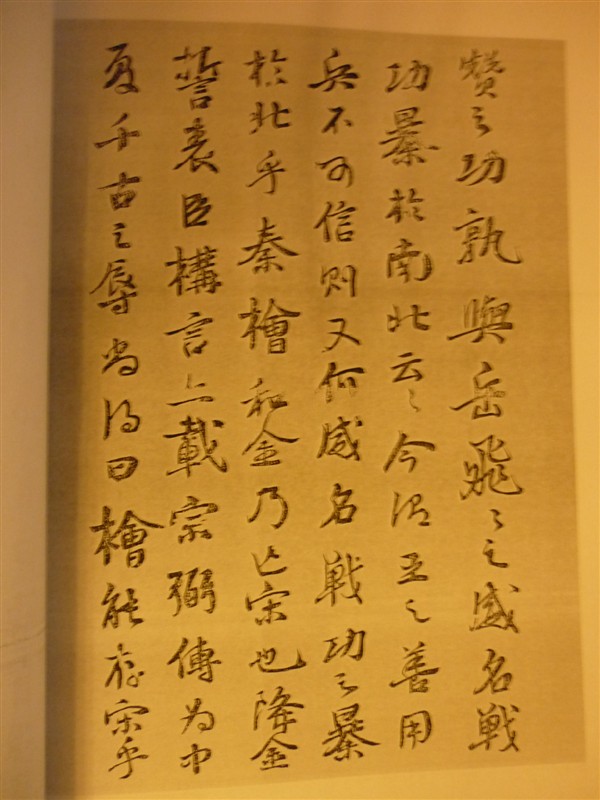 贊之功孰與岳飛飛之威名戰
功暴於南北云云今謂王之善用
兵不可信則又何威名戰功之暴
於北乎秦檜和金乃亡宋也降金
誓表臣構言上載宗弼傳為中
夏千古之辱尚得曰檜能存宋乎